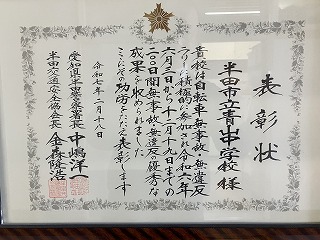 表彰状
半田市立青山中学校様
貴校は自転車無事故・無違反
ラリーに積極的に参加され令和六年
六月三日から十二月十九日までの
二〇〇日間無事故・無違反の優秀な
成果を収められました
ここにその功労をたたえ表彰します
令和七年二月十八日
愛知県半田警察署長 中嶋洋一
半田交通安全協会長 金森隆浩